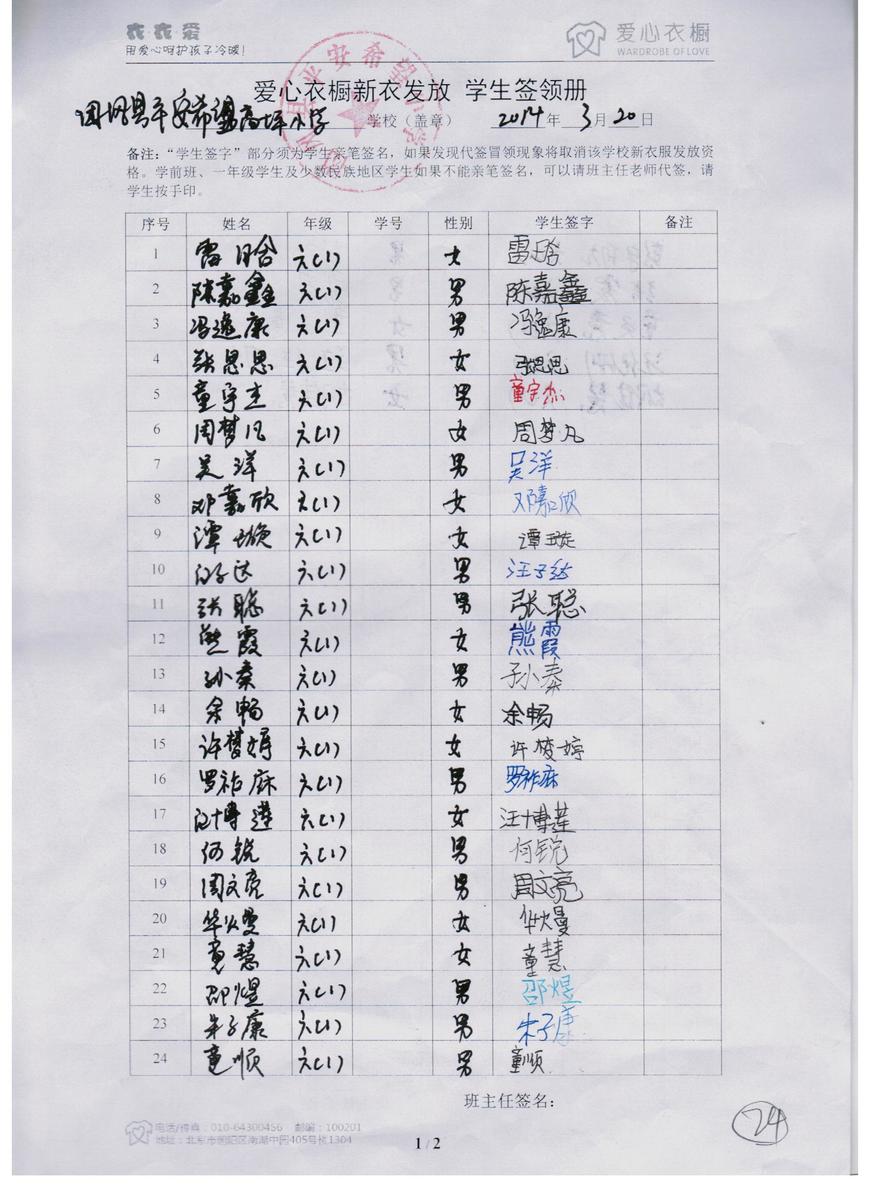 衣·衣·爱
用爱心呵护孩子冷暖!
爱心衣橱
WARDROBE OF LOVE
爱心衣橱新衣发放 学生签领册
平安希望高坪小学 学校（盖章） 2014年 3月 20日
备注：“学生签字”部分须为学生亲笔签名，如果发现代签冒领现象将取消该学校新衣服发放资
格。学前班、一年级学生及少数民族地区学生如果不能亲笔签名，可以请班主任老师代签，请
学生按手印。
序号 姓名 年级 学号 性别 学生签字 备注
1 雷 六(1) 女 雷
2 陈嘉鑫 六(1) 男 陈嘉鑫
3 冯逸康 六(1) 男 冯逸康
4 张思思 六(1) 女 张思思
5 童宇杰 六(1) 男 童宇杰
6 周梦凡 六(1) 女 周梦凡
7 吴洋 六(1) 男 吴洋
8 邓嘉欣 六(1) 女 邓嘉欣
9 谭璇 六(1) 女 谭璇
10 汪子达 六(1) 男 汪子达
11 张聪 六(1) 男 张聪
12 熊霞 六(1) 女 熊霞
13 孙秦 六(1) 男 孙秦
14 余畅 六(1) 女 余畅
15 许梦婷 六(1) 女 许梦婷
16 罗祚麻 六(1) 男 罗祚麻
17 汪博莲 六(1) 女 汪博莲
18 何锐 六(1) 男 何锐
19 周文亮 六(1) 男 周文亮
20 华火曼 六(1) 女 华火曼
21 童慧 六(1) 女 童慧
22 邵煜 六(1) 男 邵煜
23 朱子康 六(1) 男 朱子康
24 童顺 六(1) 男 童顺
班主任签名：
24
电话/传真：010-64300456 邮编：100201
地址：北京市朝阳区南湖中园405号楼1304
1 / 2